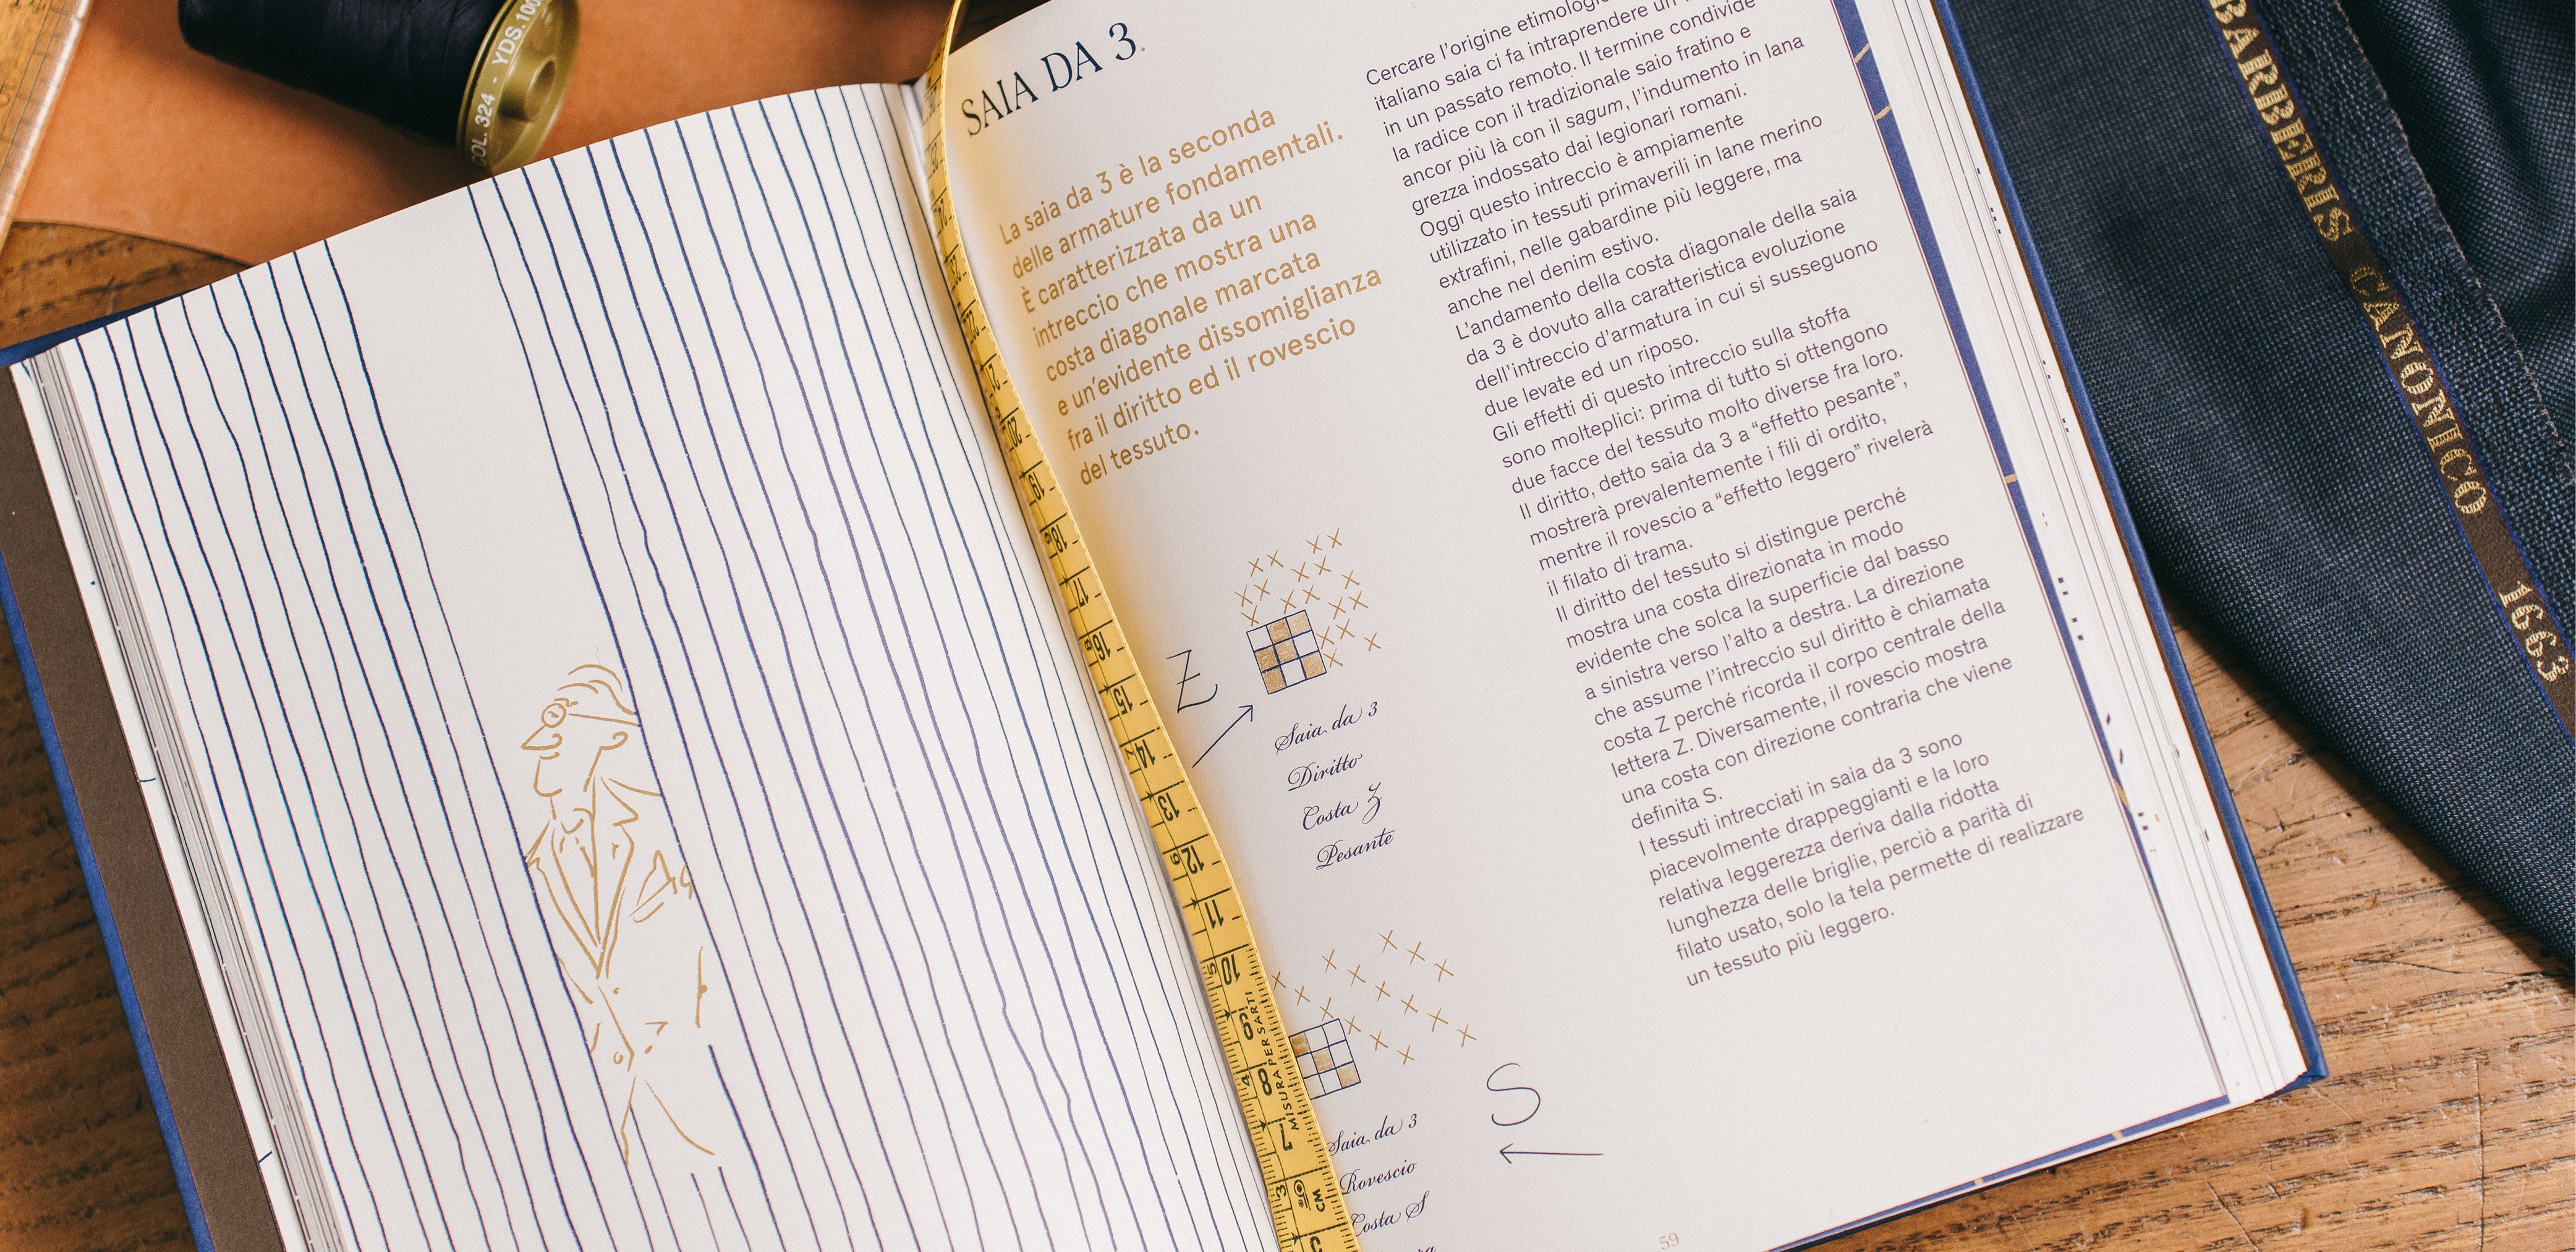 YDS. 100
COL. 324
SAIA DA 3.
La saia da 3 è la seconda
delle armature fondamentali.
È caratterizzata da un
intreccio che mostra una
costa diagonale marcata
e un'evidente dissomiglianza
fra il diritto ed il rovescio
del tessuto.
Z
Saia da 3
Diritto
Costa Z
Pesante
S
Saia da 3
Rovescio
Costa S
Cercare l'origine
italiano saia ci fa intraprendere un
in un passato remoto. Il termine condivide
la radice con il tradizionale saio fratino e
ancor più là con il sagum, l'indumento in lana
grezza indossato dai legionari romani.
Oggi questo intreccio è ampiamente
utilizzato in tessuti primaverili in lane merino
extrafini, nelle gabardine più leggere, ma
anche nel denim estivo.
L'andamento della costa diagonale della saia
da 3 è dovuto alla caratteristica evoluzione
dell'intreccio d'armatura in cui si susseguono
due levate ed un riposo.
Gli effetti di questo intreccio sulla stoffa
sono molteplici: prima di tutto si ottengono
due facce del tessuto molto diverse fra loro.
Il diritto, detto saia da 3 a “effetto pesante”,
mostrerà prevalentemente i fili di ordito,
mentre il rovescio a “effetto leggero” rivelerà
il filato di trama.
Il diritto del tessuto si distingue perché
mostra una costa direzionata in modo
evidente che solca la superficie dal basso
a sinistra verso l'alto a destra. La direzione
che assume l'intreccio sul diritto è chiamata
costa Z perché ricorda il corpo centrale della
lettera Z. Diversamente, il rovescio mostra
una costa con direzione contraria che viene
definita S.
I tessuti intrecciati in saia da 3 sono
piacevolmente drappeggianti e la loro
relativa leggerezza deriva dalla ridotta
lunghezza delle briglie, perciò a parità di
filato usato, solo la tela permette di realizzare
un tessuto più leggero.
59
22
21
20
19
18
17
16
15
14
13
12
11
10
9
8
7
MISURA PER SARTI
CM
BARBERIS CANONICO 1663